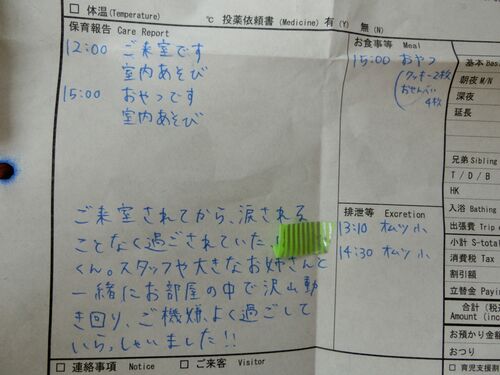 □ 体温(Temperature) ℃ 投薬依頼書 (Medicine) 有 (Y) 無 (N)
保育報告 Care Report
12:00 ご来室です
室内あそび
15:00 おやつです
室内あそび
ご来室されてから、涙される
ことなく過ごされていた、
くん。スタッフや大きなお姉さんと
一緒にお部屋の中で沢山動
き回り、ご機嫌よく過ごして
いらっしゃいました!!
お食事等 Meal
15:00 おやつ
(クッキー2枚
おせんべい
4枚)
排泄等 Excretion
13:10 オムツ 小
14:30 オムツ 小
基本 Bas
朝夜 M/N
深夜
延長
兄弟 Sibling
T / D / B
HK
入浴 Bathing
出張費 Trip
小計 S-total
消費税 Tax
割引額
立替金 Payin
合計 (税
Amount (inc
お預かり金額
おつり
□ 連絡事項 Notice □ ご来客 Visitor
□ 育児支援割